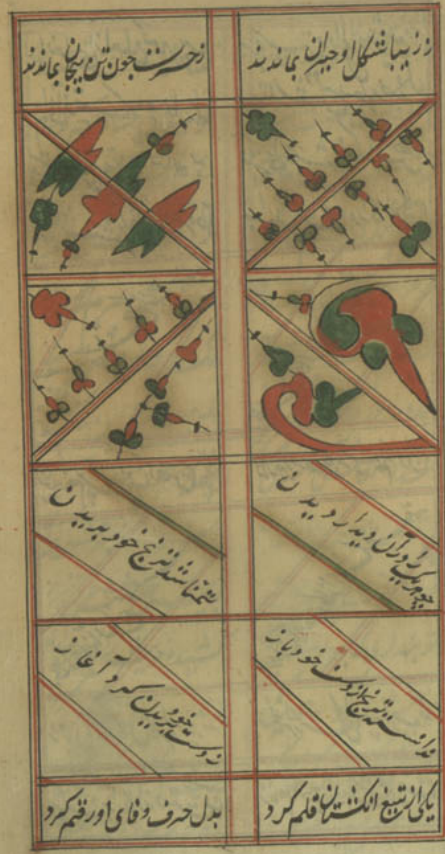 ز زیبا شکل او حیران بماندند    ز حیرت چون تن بیجان بماندند
چو هر یک را در آن دیدار دیدن    تمنا شد ترنج خود بریدن
ندانسته ترنج از دست خود باز    ز دست خود بریدن کرد آغاز
یکی از تیغ انگشتان قلم کرد    بدل حرف وفای او رقم کرد